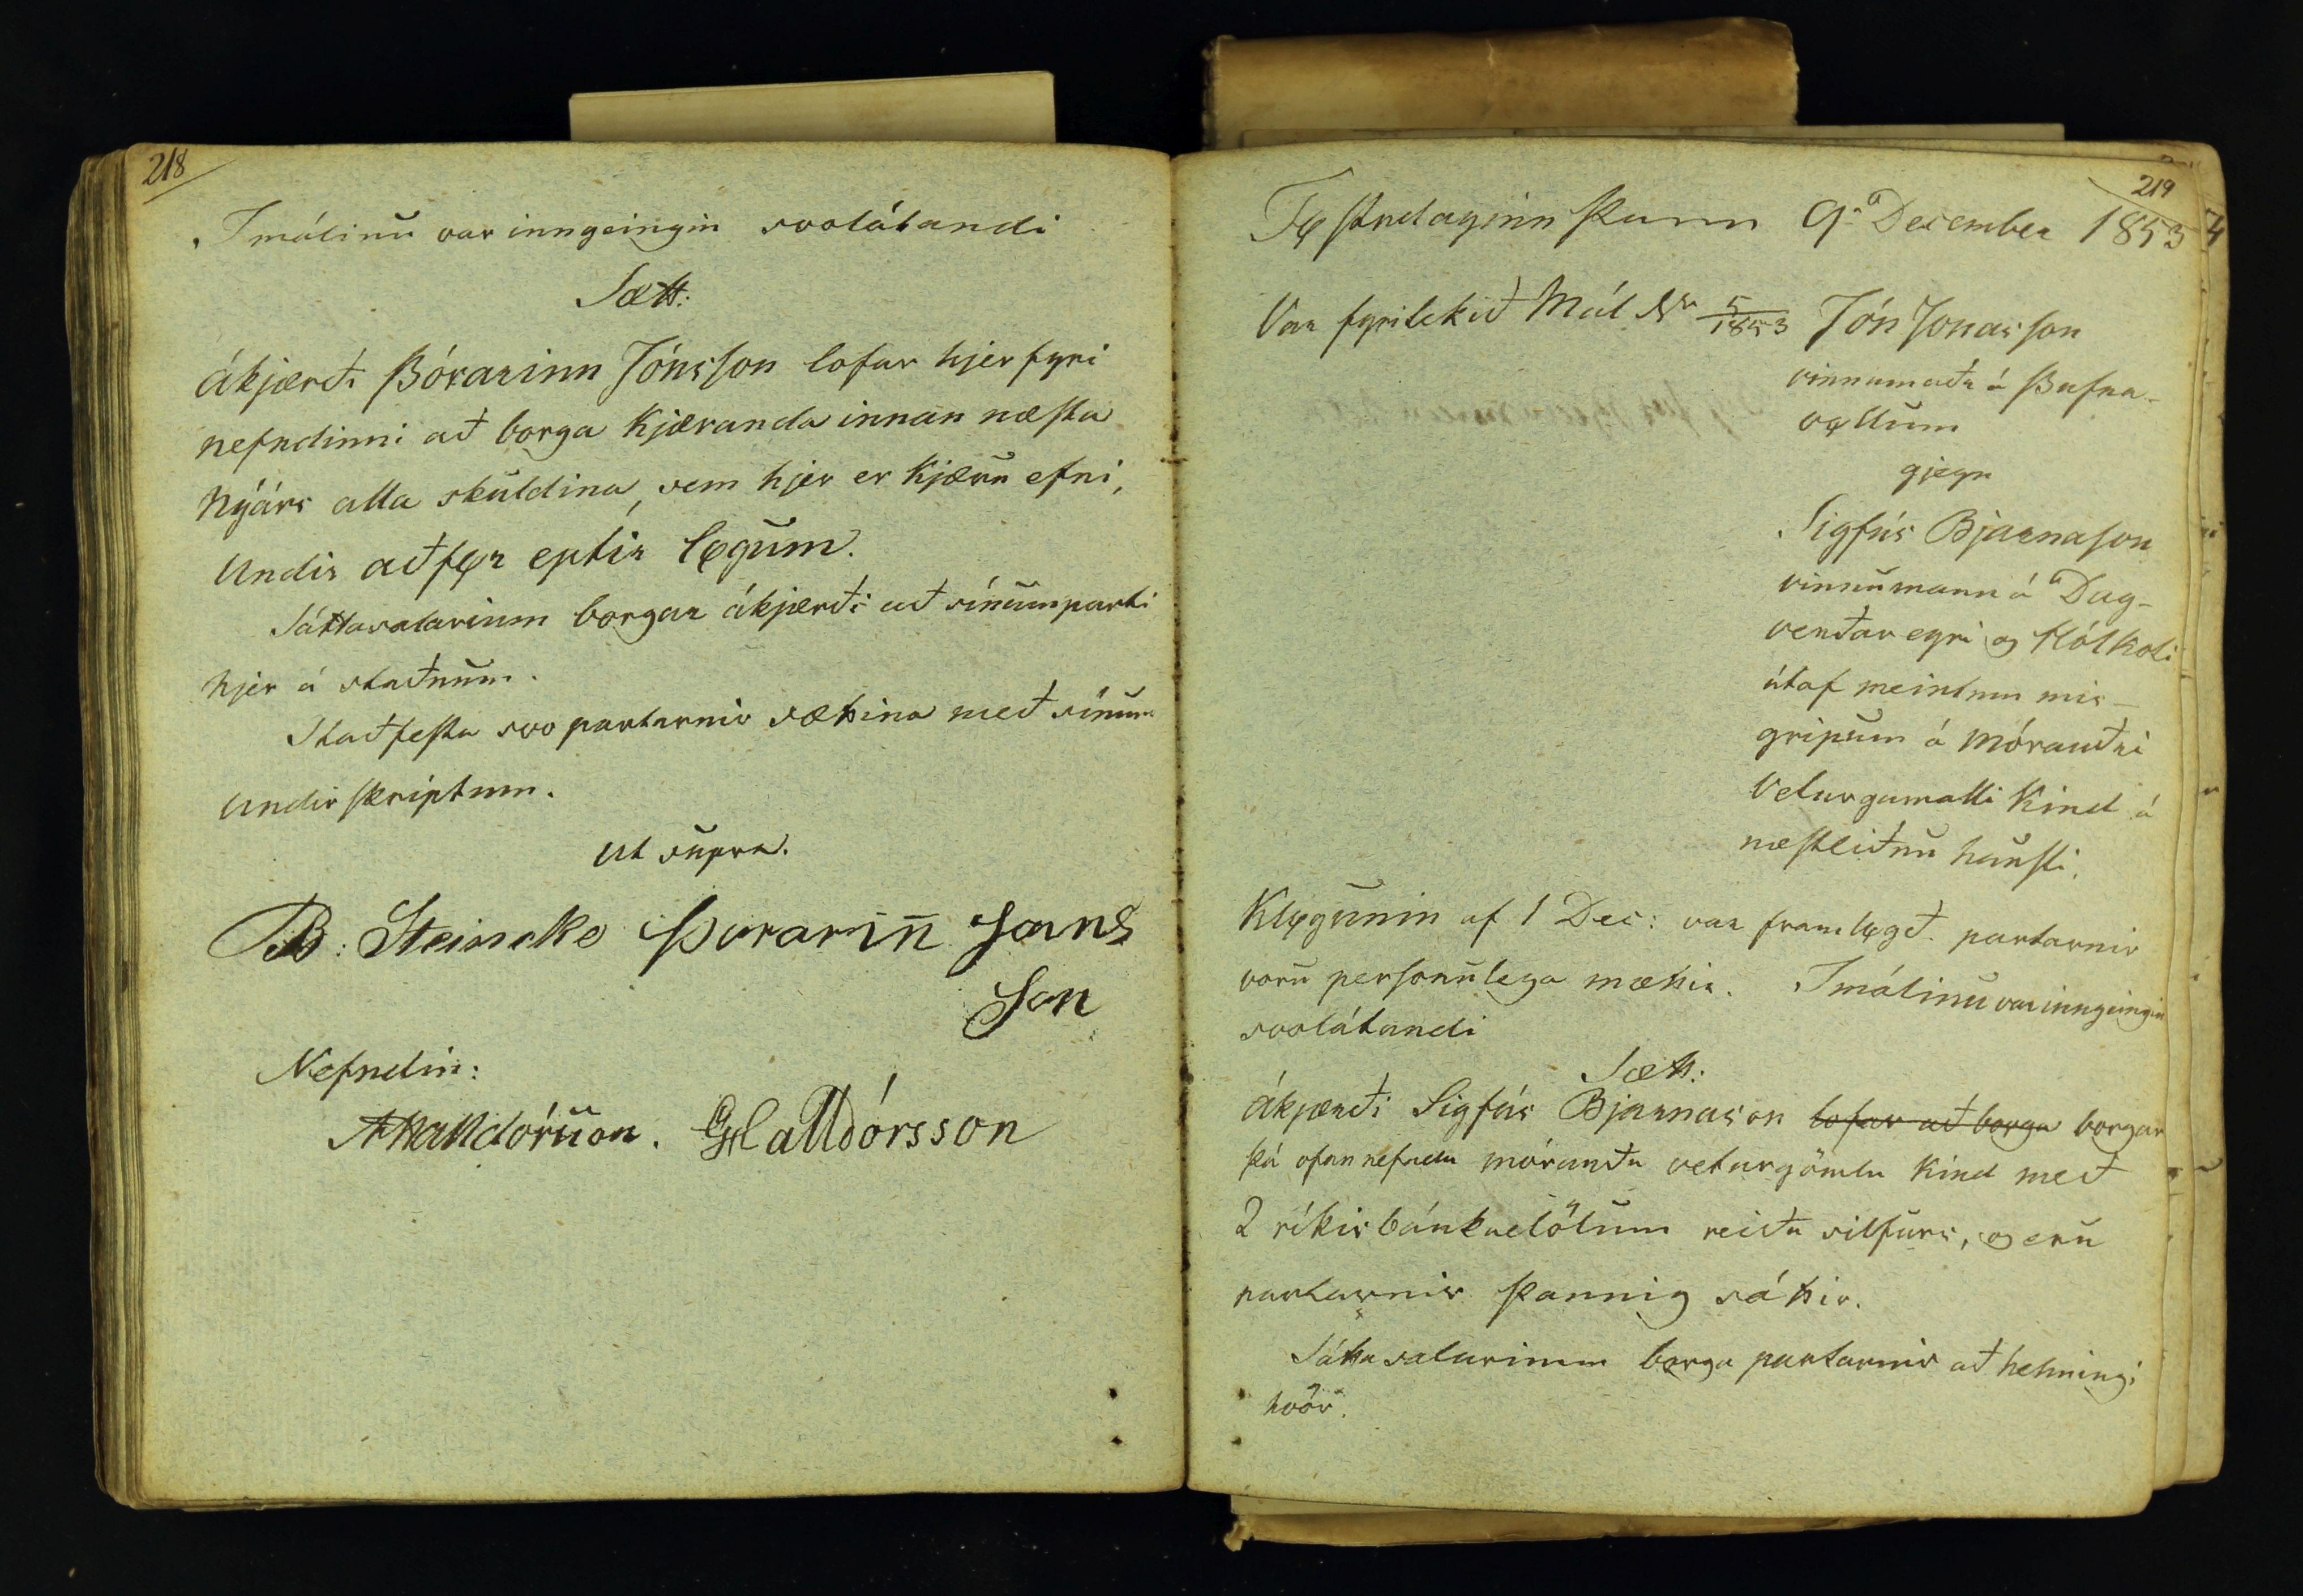 218
Imálinu var inngeingin svolátandi
Sætt:
ákjærði Þórarinn Jónsson lofar hjer fyri
nefndinni að borga Kjæranda innan næsta
Nýárs alla skuldina, sem hjer er kjæru efni,
undir aðför eptir lögum.
Sáttasalarium borgar ákjærði að sínum parti
hjer á staðnum.
Staðfesta svo partarnir sættina með sínum
undirskriptum.
ut supra.
B: Steincke Þorarin̄ Jons
Son
Nefndin:
AHalldórsson. GHalldórsson
219
Föstudaginn þann 9a December 1853
Var fyritekið Mál Nr 5/1853 Jón Jonasson
vinnumaðr á Þufna-
völlum
gjegn
Sigfús Bjarnason
vinnumann á Dag-
verðar eyri og
útaf meintum mis-
gripum á mórauðri
veturgamalli Kind á
næstliðnu hausti.
Klögunin af 1 Dec: var framlögð. partarnir
voru personulega mættir. Imálinu var inngeingin
svolátandi
Sætt:
Ákjærði Sigfús Bjarnason lofar að borga borgar
þá ofannefndu mórauðu veturgömlu Kind með
2 ríkisbánkadölum reiðu silfurs, og eru
partarnir þannig sáttir.
Sáttasalarium borga partarnir að helmingi
hvör.